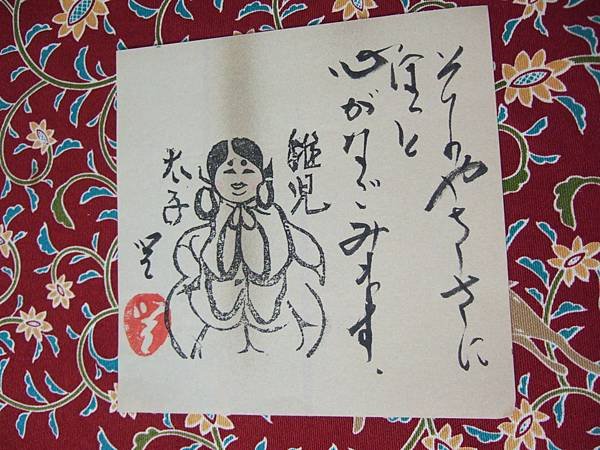 そのやさしさに
心がなごみます、
稚児
太子